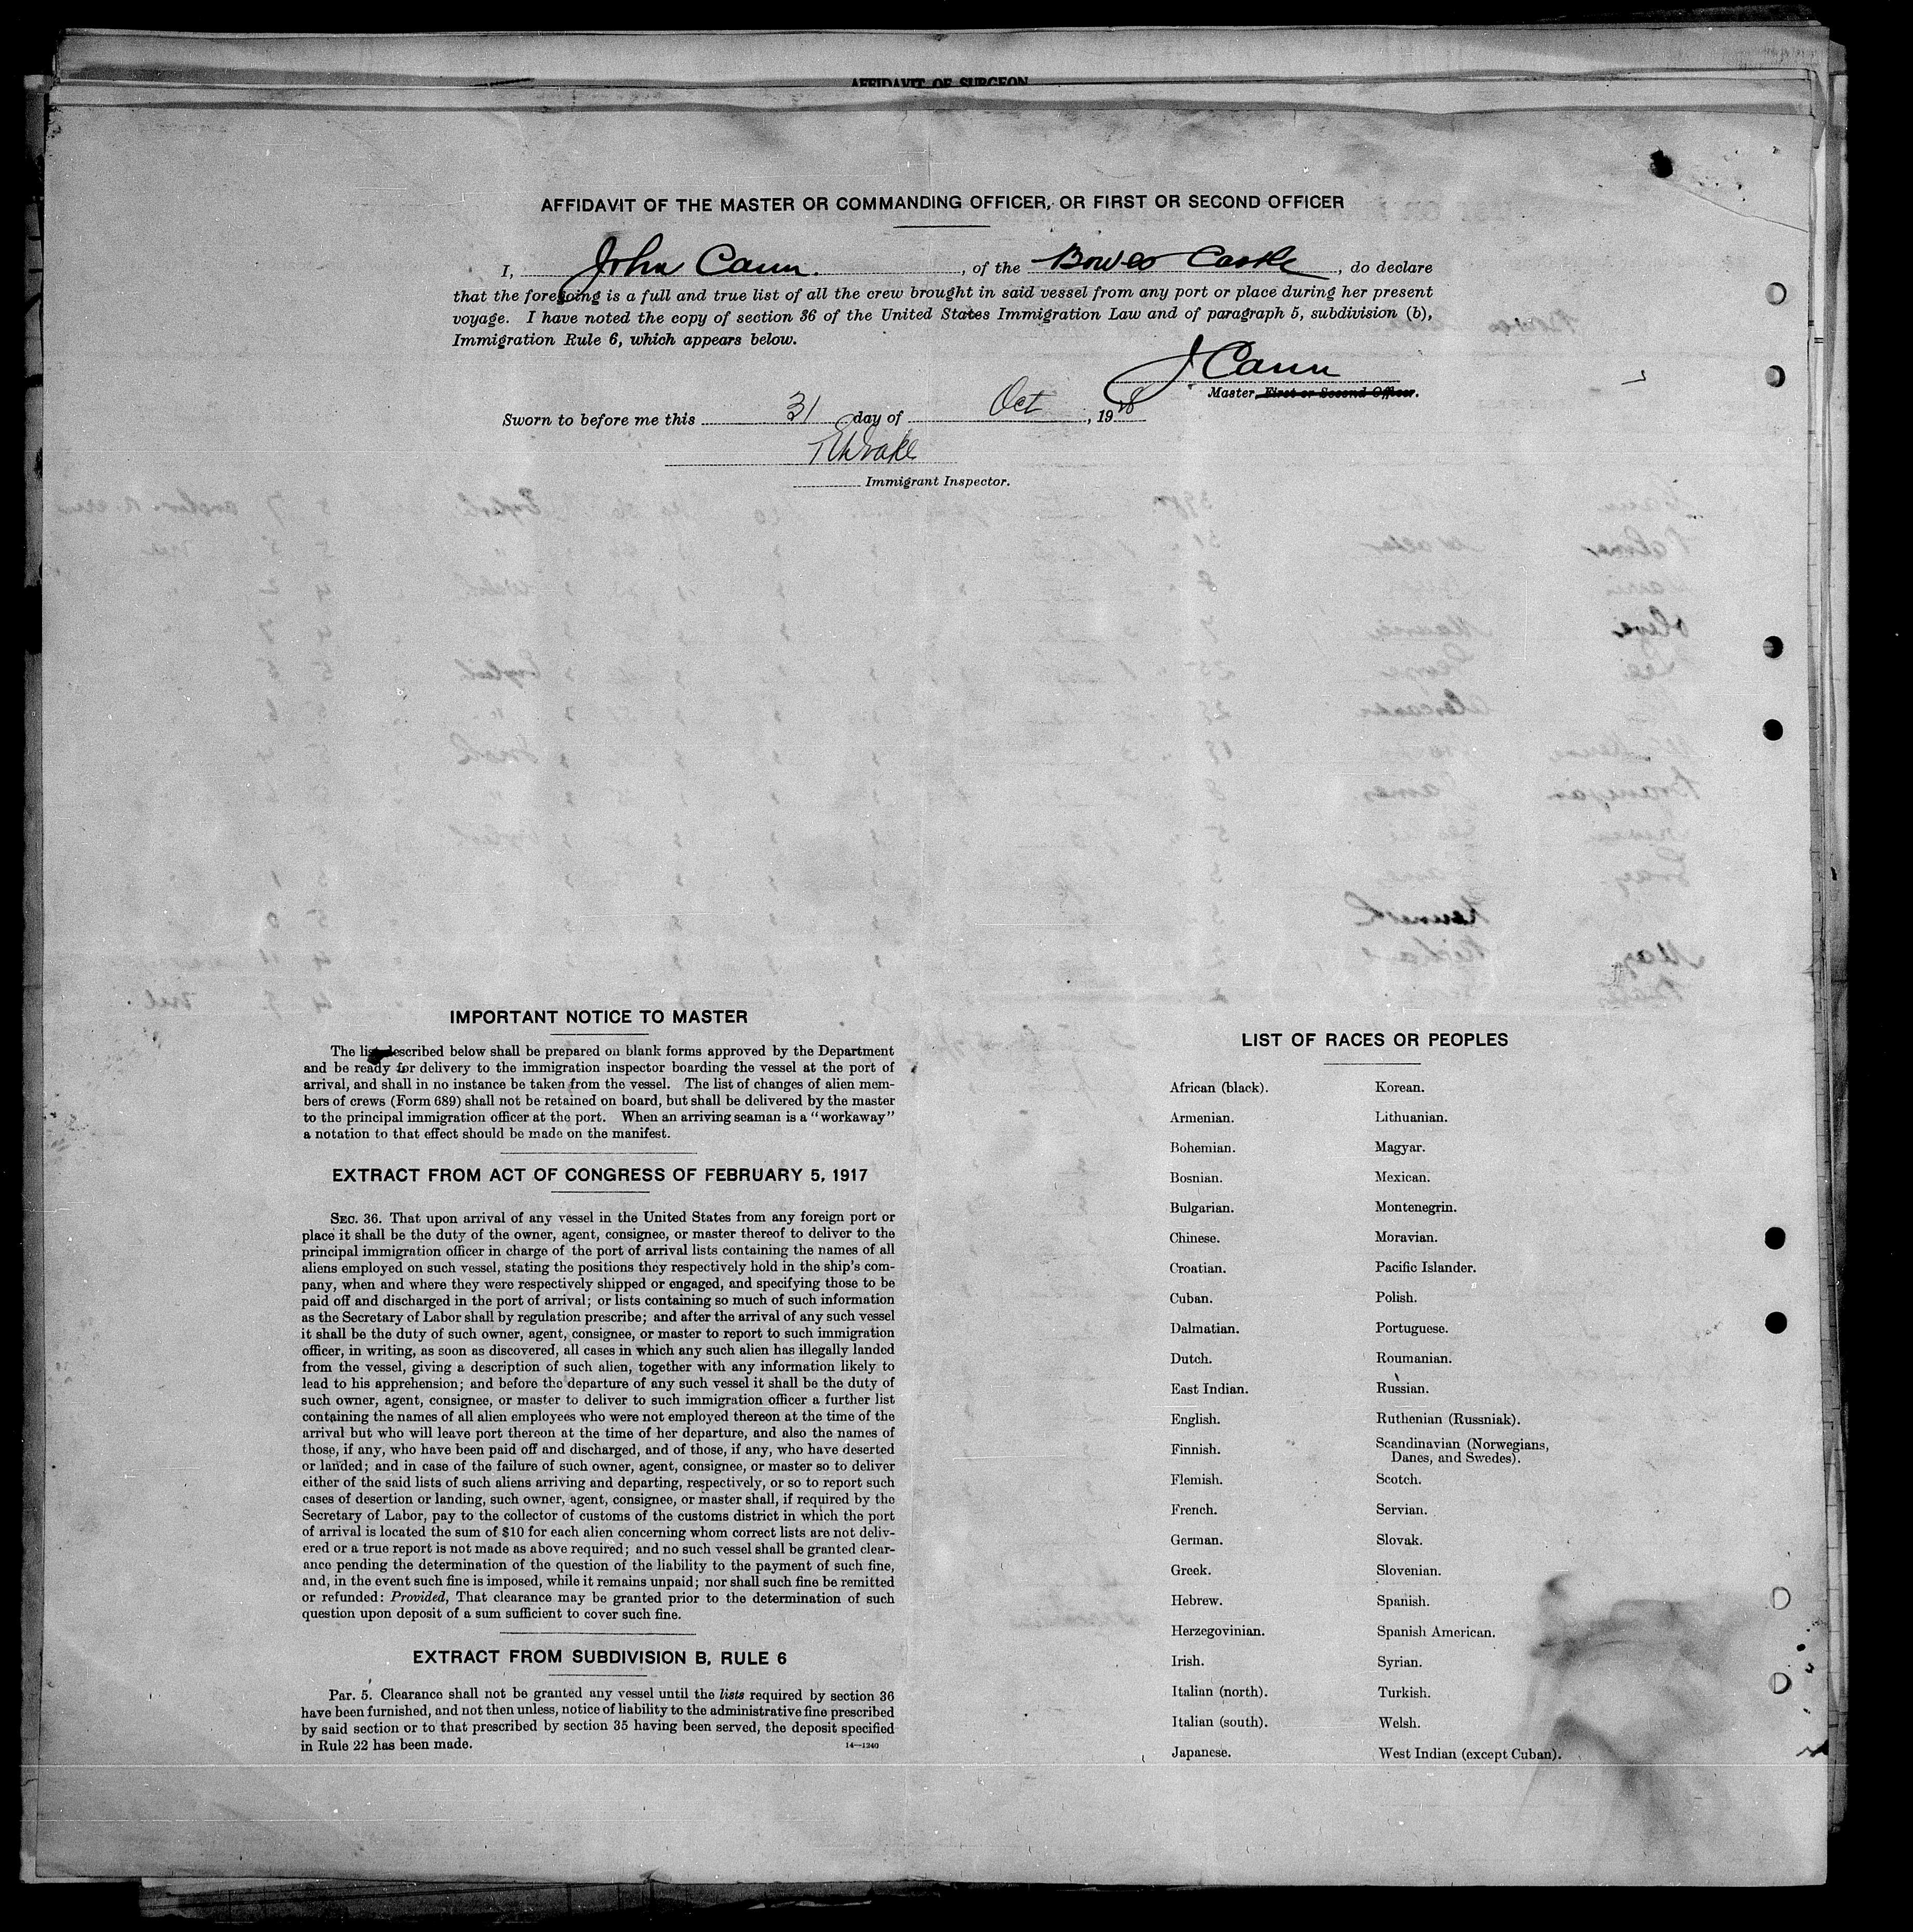 AFFIDAVIT OF SURGEON
AFFIDAVIT OF THE MASTER OR COMMANDING OFFICER, OR FIRST OR SECOND OFFICER
I, John Cann. , of the Bowes Castle , do declare
that the foregoing is a full and true list of all the crew brought in said vessel from any port or place during her present
voyage. I have noted the copy of section 36 of the United States Immigration Law and of paragraph 5, subdivision (b),
Immigration Rule 6, which appears below.
J Cann
Master, First or Second Officer.
Sworn to before me this 31 day of Oct , 19
Immigrant Inspector.
IMPORTANT NOTICE TO MASTER
The list described below shall be prepared on blank forms approved by the Department
and be ready for delivery to the immigration inspector boarding the vessel at the port of
arrival, and shall in no instance be taken from the vessel. The list of changes of alien mem-
bers of crews (Form 689) shall not be retained on board, but shall be delivered by the master
to the principal immigration officer at the port. When an arriving seaman is a "workaway"
a notation to that effect should be made on the manifest.
EXTRACT FROM ACT OF CONGRESS OF FEBRUARY 5, 1917
SEC. 36. That upon arrival of any vessel in the United States from any foreign port or
place it shall be the duty of the owner, agent, consignee, or master thereof to deliver to the
principal immigration officer in charge of the port of arrival lists containing the names of all
aliens employed on such vessel, stating the positions they respectively hold in the ship's com-
pany, when and where they were respectively shipped or engaged, and specifying those to be
paid off and discharged in the port of arrival; or lists containing so much of such information
as the Secretary of Labor shall by regulation prescribe; and after the arrival of any such vessel
it shall be the duty of such owner, agent, consignee, or master to report to such immigration
officer, in writing, as soon as discovered, all cases in which any such alien has illegally landed
from the vessel, giving a description of such alien, together with any information likely to
lead to his apprehension; and before the departure of any such vessel it shall be the duty of
such owner, agent, consignee, or master to deliver to such immigration officer a further list
containing the names of all alien employees who were not employed thereon at the time of the
arrival but who will leave port thereon at the time of her departure, and also the names of
those, if any, who have been paid off and discharged, and of those, if any, who have deserted
or landed; and in case of the failure of such owner, agent, consignee, or master so to deliver
either of the said lists of such aliens arriving and departing, respectively, or so to report such
cases of desertion or landing, such owner, agent, consignee, or master shall, if required by the
Secretary of Labor, pay to the collector of customs of the customs district in which the port
of arrival is located the sum of $10 for each alien concerning whom correct lists are not deliv-
ered or a true report is not made as above required; and no such vessel shall be granted clear-
ance pending the determination of the question of the liability to the payment of such fine,
and, in the event such fine is imposed, while it remains unpaid; nor shall such fine be remitted
or refunded: Provided, That clearance may be granted prior to the determination of such
question upon deposit of a sum sufficient to cover such fine.
EXTRACT FROM SUBDIVISION B, RULE 6
Par. 5. Clearance shall not be granted any vessel until the lists required by section 36
have been furnished, and not then unless, notice of liability to the administrative fine prescribed
by said section or to that prescribed by section 35 having been served, the deposit specified
in Rule 22 has been made.
14—1240
LIST OF RACES OR PEOPLES
African (black).
Armenian.
Bohemian.
Bosnian.
Bulgarian.
Chinese.
Croatian.
Cuban.
Dalmatian.
Dutch.
East Indian.
English.
Finnish.
Flemish.
French.
German.
Greek.
Hebrew.
Herzegovinian.
Irish.
Italian (north).
Italian (south).
Japanese.
Korean.
Lithuanian.
Magyar.
Mexican.
Montenegrin.
Moravian.
Pacific Islander.
Polish.
Portuguese.
Roumanian.
Russian.
Ruthenian (Russniak).
Scandinavian (Norwegians,
Danes, and Swedes).
Scotch.
Servian.
Slovak.
Slovenian.
Spanish.
Spanish American.
Syrian.
Turkish.
Welsh.
West Indian (except Cuban).